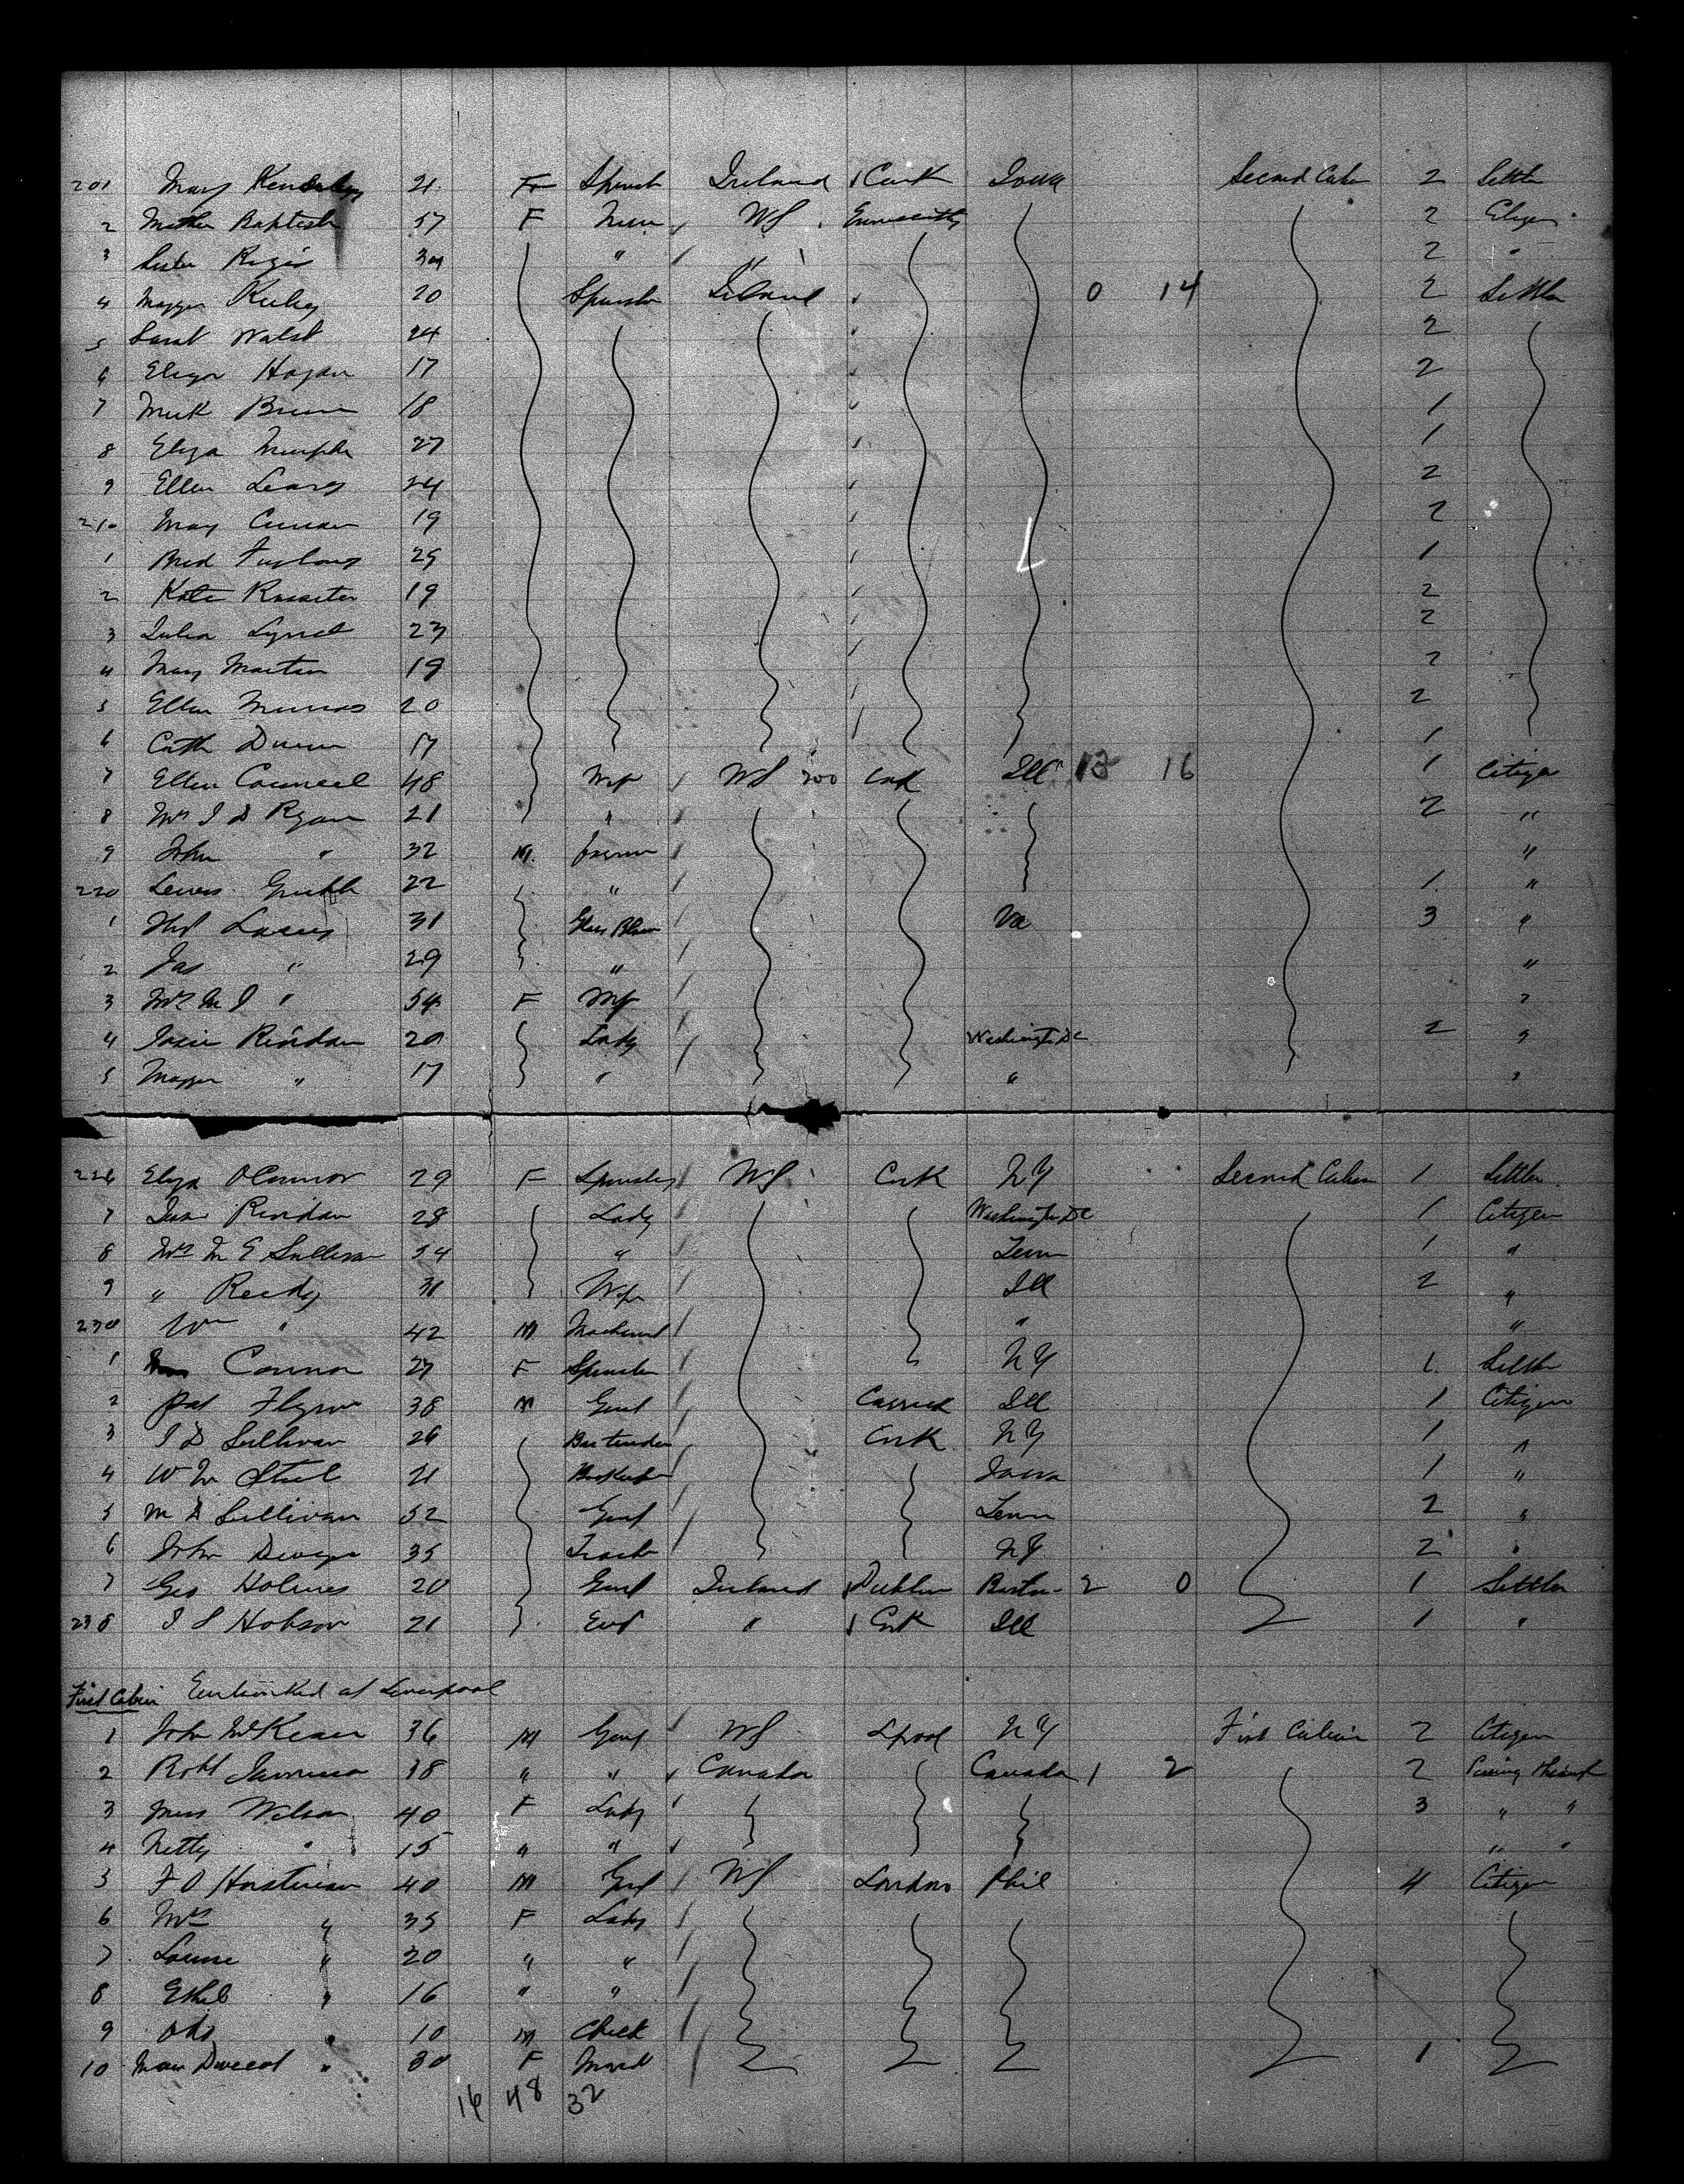 201 Mary 21 F Spinster Ireland Cork Iowa Second Cabin 2 Settler
2 Mother Baptist 57 F Nun US 2
3 Sister Regis " 2 "
4 20 Spinster Ireland 0 14 2 Settler
5 Sarah Walsh 24 2
6 Eliza Hogan 17 2
7 18 1
8 Eliza Murphy 27 1
9 Ellen Leary 24 2
210 Mary Curran 19 2
1 Brid Furlong 25 1
2 Kate Rossiter 19 2
3 Julia Lynch 23 2
4 Mary Martin 19 2
5 Ellen 20 2
6 Cath Dunn 17 1
7 Ellen 48 Wife US 200 Cork Ill 13 16 1 Citizen
8 Mrs J D Ryan 21 " 2 "
9 John " 32 M "
220 Lewis 22 " 1 "
1 31 Glass Blower Va 3 "
2 Jas " 29 " "
3 Mrs M J " 54 F Wife "
4 Josie Riordan 20 Lady Washington DC 2 "
5 " 17 " " "
226 Eliza OConnor 29 F Spinster US Cork NY Second Cabin 1 Settler
7 Riordan 28 Lady Washington DC 1 Citizen
8 Mrs M E Sullivan 54 " Tenn 1 "
9 " Reedy 31 Wife Ill 2 "
230 Wm " 42 M Machinist " "
1 Connor 27 F Spinster NY 1 Settler
2 Pat Flynn 38 M Gent Carrick Ill 1 Citizen
3 J D Sullivan 26 Bartender Cork NY 1 "
4 W M Steel 21 Bookkeeper Iowa 1 "
5 M D Sullivan 52 Gent Tenn 2 "
6 John Dwyer 35 NY 2 "
7 Geo Holmes 20 Gent Ireland Dublin Boston 2 0 1 Settler
238 J S Hobson 21 " Cork Ill 1 "
First Cabin Embarked at Liverpool
1 John McKean 36 M Gent US Lpool NY First Cabin 2 Citizen
2 Robt Jamieson 38 " " Canada Canada 1 2 2 Passing through
3 Miss Wilson 40 F Lady 3 " "
4 Netty " 15 " " " "
5 F O Horstman 40 M Gent US London Phil 4 Citizen
6 Mrs " 35 F Lady
7 Louise " 20 " "
8 Ethel " 16 " "
9 Otto " 10 M Child
10 " 30 F Maid 1
16 48 32